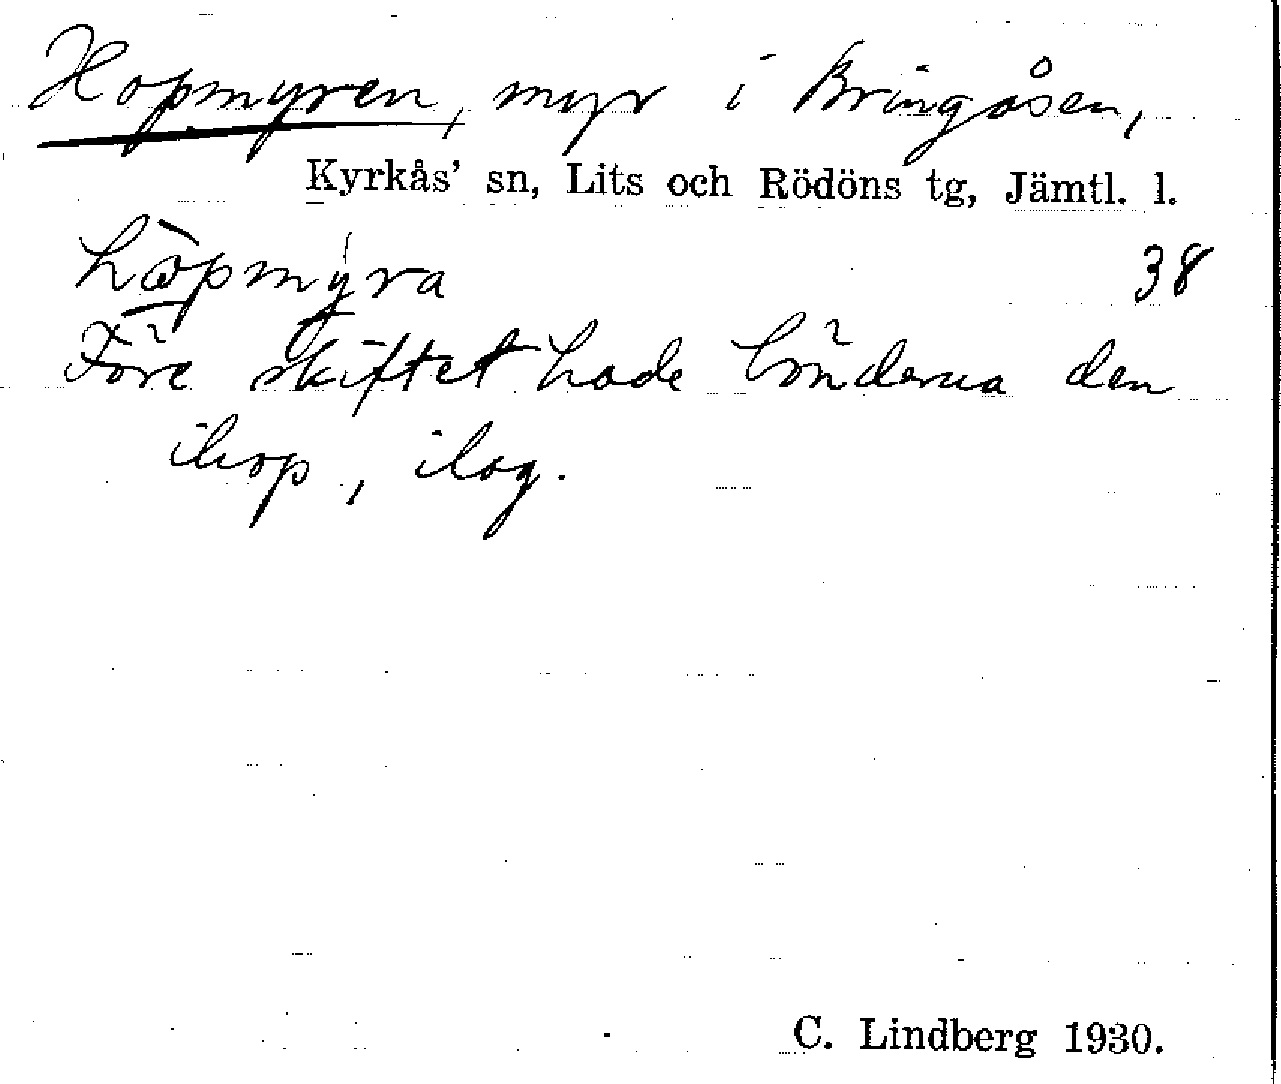 Hopmyren, myr i Bringåsen,
Kyrkås' sn, Lits och Rödöns tg, Jämtl. l.
hòpmýra 38
Före skiftet hade bönderna den
ihop, ilag.
C. Lindberg 1930.